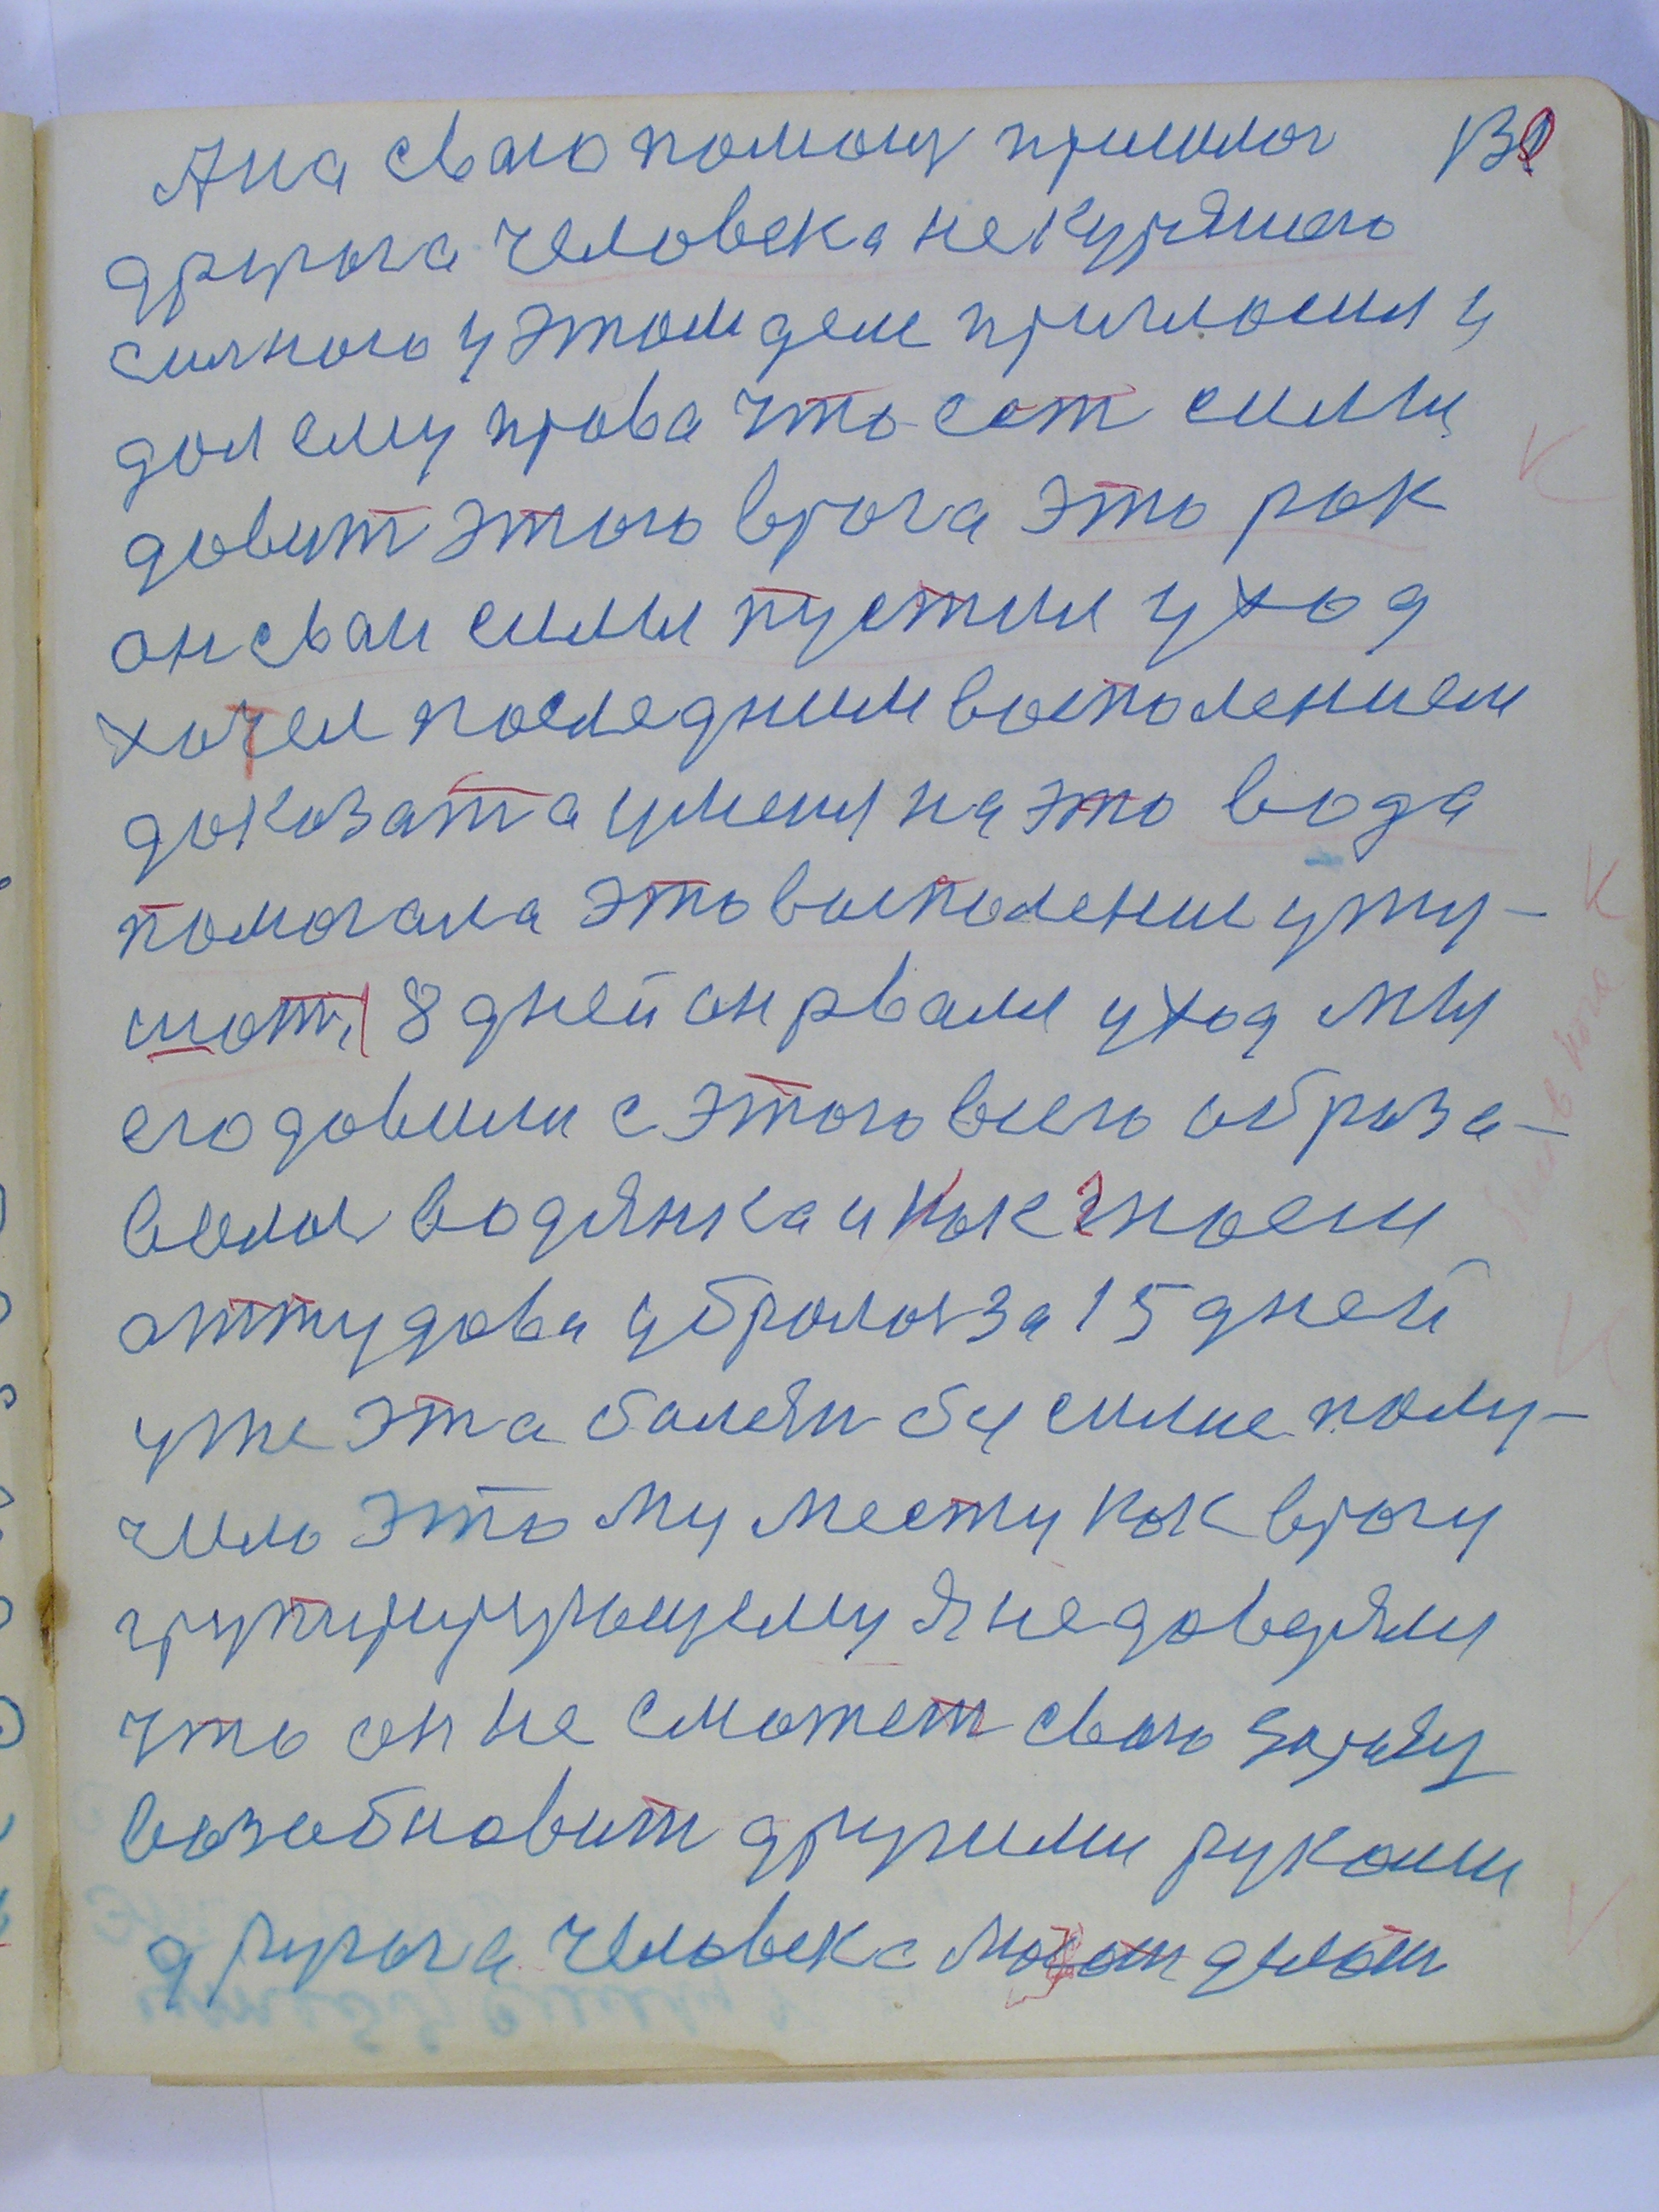 Ана сваю помощ прислала 132
другога человека некурящего
силного у этом деле пригласил и
дал ему права что сат силы
давит этого врага это рак
он сваи силы пустил у ход
хочел последним восполением
доказат а умения на это вода
помагала это восполение ужу-
шат, 8 дней он рвался у ход мы
его давили с этого всего образа-
валась водянка и как гноем
оттудова убралась за 15 дней
уже эта балезн бусилие полу-
чило этому месту как врагу
групирирующему я не доверялся
что он не сможет сваю заразу
возобновит другими руками
другога человека может делат